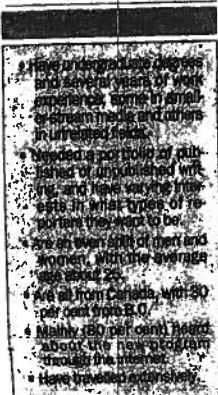 • Have undergraduate degrees
and several years of work
experience, some in small-
er-stream media and others
in unrelated fields.
• Needed a portfolio of pub-
lished or unpublished writ-
ing, and have varying inter-
ests in what types of re-
porters they want to be.
• Are an even split of men and
women, with the average
age about 25.
• Are all from Canada, with 30
per cent from B.C.
• Mainly (80 per cent) heard
about the new program
through the internet.
• Have travelled extensively.